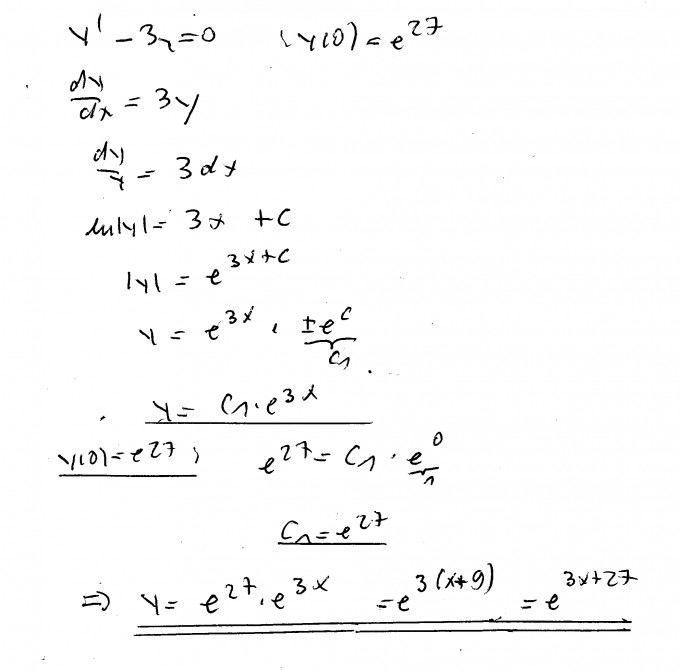 y' - 3y = 0 , y(0) = e^27
dy/dx = 3y
dy/y = 3dx
ln|y| = 3x + C
|y| = e^(3x+C)
y = e^(3x) · ±e^C
C₁
y = C₁ · e^(3x)
y(0) = e^27 ; e^27 = C₁ · e^0
1
C₁ = e^27
⇒ y = e^27 · e^(3x) = e^(3(x+9)) = e^(3x+27)